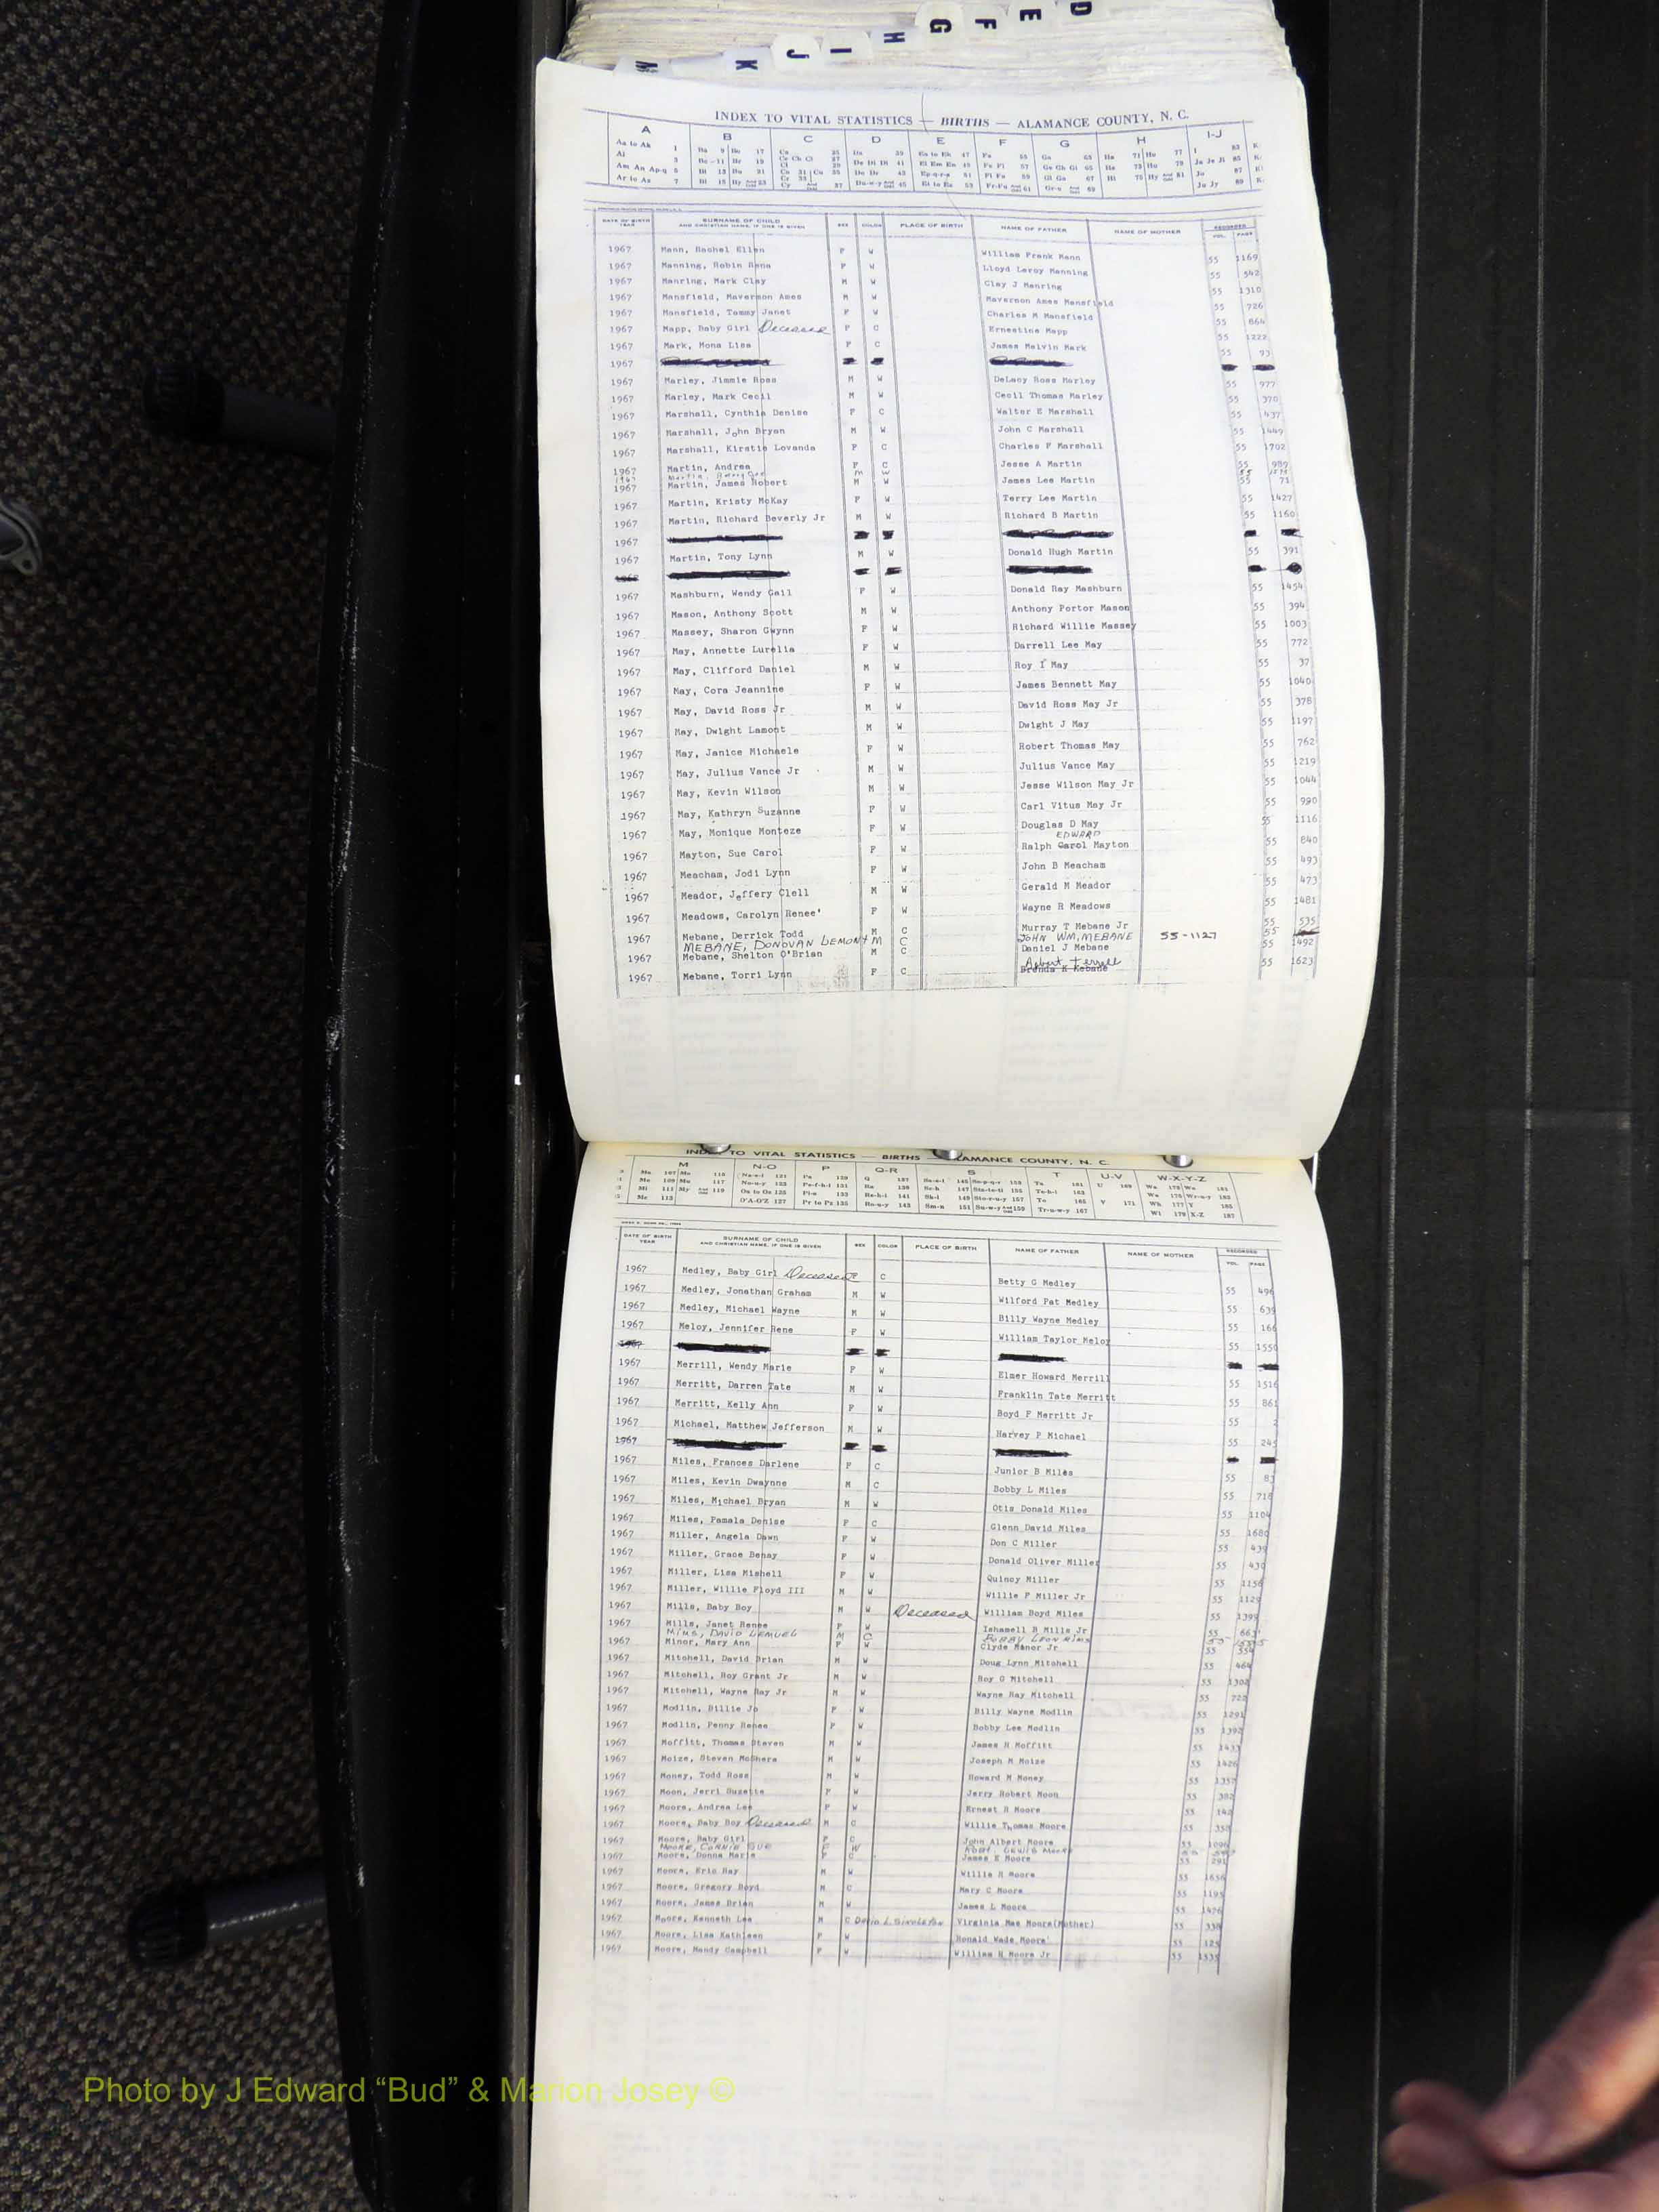 D
E
F
G
H
I
J
K
M
INDEX TO VITAL STATISTICS — BIRTHS — ALAMANCE COUNTY, N. C.
A B C D E F G H I-J
DATE OF BIRTH YEAR SURNAME OF CHILD AND CHRISTIAN NAME, IF ONE IS GIVEN SEX COLOR PLACE OF BIRTH NAME OF FATHER NAME OF MOTHER RECORDED VOL. PAGE
1967 Mann, Rachel Ellen F W William Frank Mann 55 1169
1967 Manning, Robin Rena F W Lloyd Leroy Manning 55 542
1967 Manring, Mark Clay M W Clay J Manring 55 1310
1967 Mansfield, Mavernon Ames M W Mavernon Ames Mansfield 55 726
1967 Mansfield, Tammy Janet F W Charles M Mansfield 55 864
1967 Mapp, Baby Girl Deceased F C Ernestine Mapp 55 1222
1967 Mark, Mona Lisa F C James Melvin Mark 55 93
1967
1967 Marley, Jimmie Ross M W DeLacy Ross Marley 55 977
1967 Marley, Mark Cecil M W Cecil Thomas Marley 55 370
1967 Marshall, Cynthia Denise F C Walter E Marshall 55 437
1967 Marshall, John Bryan M W John C Marshall 55 1449
1967 Marshall, Kirstie Lovanda F C Charles F Marshall 55 1702
1967 Martin, Andrea F C Jesse A Martin 55 989
1967 Martin, M W 55
1967 Martin, James Robert M W James Lee Martin 55 71
1967 Martin, Kristy McKay F W Terry Lee Martin 55 1427
1967 Martin, Richard Beverly Jr M W Richard B Martin 55 1160
1967
1967 Martin, Tony Lynn M W Donald Hugh Martin 55 391
1967 Mashburn, Wendy Gail F W Donald Ray Mashburn 55 1454
1967 Mason, Anthony Scott M W Anthony Portor Mason 55 394
1967 Massey, Sharon Gwynn F W Richard Willie Massey 55 1003
1967 May, Annette Lurelia F W Darrell Lee May 55 772
1967 May, Clifford Daniel M W Roy I May 55 37
1967 May, Cora Jeannine F W James Bennett May 55 1040
1967 May, David Ross Jr M W David Ross May Jr 55 378
1967 May, Dwight Lamont M W Dwight J May 55 1197
1967 May, Janice Michaele F W Robert Thomas May 55 762
1967 May, Julius Vance Jr M W Julius Vance May 55 1219
1967 May, Kevin Wilson M W Jesse Wilson May Jr 55 1044
1967 May, Kathryn Suzanne F W Carl Vitus May Jr 55 990
1967 May, Monique Monteze F W Douglas D May 55 1116
EDWARD
1967 Mayton, Sue Carol F W Ralph Carol Mayton 55 840
1967 Meacham, Jodi Lynn F W John B Meacham 55 493
1967 Meador, Jeffery Clell M W Gerald M Meador 55 473
1967 Meadows, Carolyn Renee' F W Wayne R Meadows 55 1481
1967 Mebane, Derrick Todd M C Murray T Mebane Jr 55 535
MEBANE, DONOVAN LEMONT M C JOHN WM. MEBANE 55-1127 55
1967 Mebane, Shelton O'Brian M C Daniel J Mebane 55 1492
Terrell
1967 Mebane, Torri Lynn F C Brenda K Kebane 55 1623
INDEX TO VITAL STATISTICS — BIRTHS — ALAMANCE COUNTY, N. C.
M N-O P Q-R S T U-V W-X-Y-Z
DATE OF BIRTH YEAR SURNAME OF CHILD AND CHRISTIAN NAME, IF ONE IS GIVEN SEX COLOR PLACE OF BIRTH NAME OF FATHER NAME OF MOTHER RECORDED VOL. PAGE
1967 Medley, Baby Girl Deceased F C Betty G Medley 55 496
1967 Medley, Jonathan Graham M W Wilford Pat Medley 55 639
1967 Medley, Michael Wayne M W Billy Wayne Medley 55 166
1967 Meloy, Jennifer Rene F W William Taylor Meloy 55 1550
1967
1967 Merrill, Wendy Marie F W Elmer Howard Merrill 55 1516
1967 Merritt, Darren Tate M W Franklin Tate Merritt 55 861
1967 Merritt, Kelly Ann F W Boyd F Merritt Jr 55
1967 Michael, Matthew Jefferson M W Harvey P Michael 55 245
1967
1967 Miles, Frances Darlene F C Junior B Miles 55 83
1967 Miles, Kevin Dwaynne M C Bobby L Miles 55 718
1967 Miles, Michael Bryan M W Otis Donald Miles 55 1104
1967 Miles, Pamala Denise F C Glenn David Miles 55 1680
1967 Miller, Angela Dawn F W Don C Miller 55 439
1967 Miller, Grace Benay F W Donald Oliver Miller 55 430
1967 Miller, Lisa Mishell F W Quincy Miller 55 1156
1967 Miller, Willie Floyd III M W Willie F Miller Jr 55 1129
1967 Mills, Baby Boy M W Deceased William Boyd Miles 55 1399
1967 Mills, Janet Renee F W Ishamell R Mills Jr 55 663
MIMS, DAVID LEMUEL M C BOBBY LEON MIMS 55
1967 Minor, Mary Ann F W Clyde Minor Jr 55 554
1967 Mitchell, David Brian M W Doug Lynn Mitchell 55 464
1967 Mitchell, Roy Grant Jr M W Roy G Mitchell 55 1302
1967 Mitchell, Wayne Ray Jr M W Wayne Ray Mitchell 55 722
1967 Modlin, Billie Jo F W Billy Wayne Modlin 55 1291
1967 Modlin, Penny Renee F W Bobby Lee Modlin 55 1392
1967 Moffitt, Thomas Steven M W James H Moffitt 55 1433
1967 Moize, Steven McShera M W Joseph M Moize 55 1426
1967 Money, Todd Ross M W Howard M Money 55 1357
1967 Moon, Jerri Suzette F W Jerry Robert Moon 55 382
1967 Moore, Andrea Lee F W Ernest R Moore 55 142
1967 Moore, Baby Boy Deceased M C Willie Thomas Moore 55 358
1967 Moore, Baby Girl F C John Albert Moore 55 1096
MOORE, CONNIE SUE F W ROBT. LEWIS MOORE 55
1967 Moore, Donna Marie F C James E Moore 55 291
1967 Moore, Eric Ray M W Willie R Moore 55 1656
1967 Moore, Gregory Boyd M C Mary C Moore 55 1195
1967 Moore, James Brian M W James L Moore 55 1476
1967 Moore, Kenneth Lee M C David L. Singleton Virginia Mae Moore(Mother) 55 338
1967 Moore, Lisa Kathleen F W Ronald Wade Moore 55 125
1967 Moore, Mandy Campbell F W William H Moore Jr 55 1535
Photo by J Edward “Bud” & Marion Josey ©